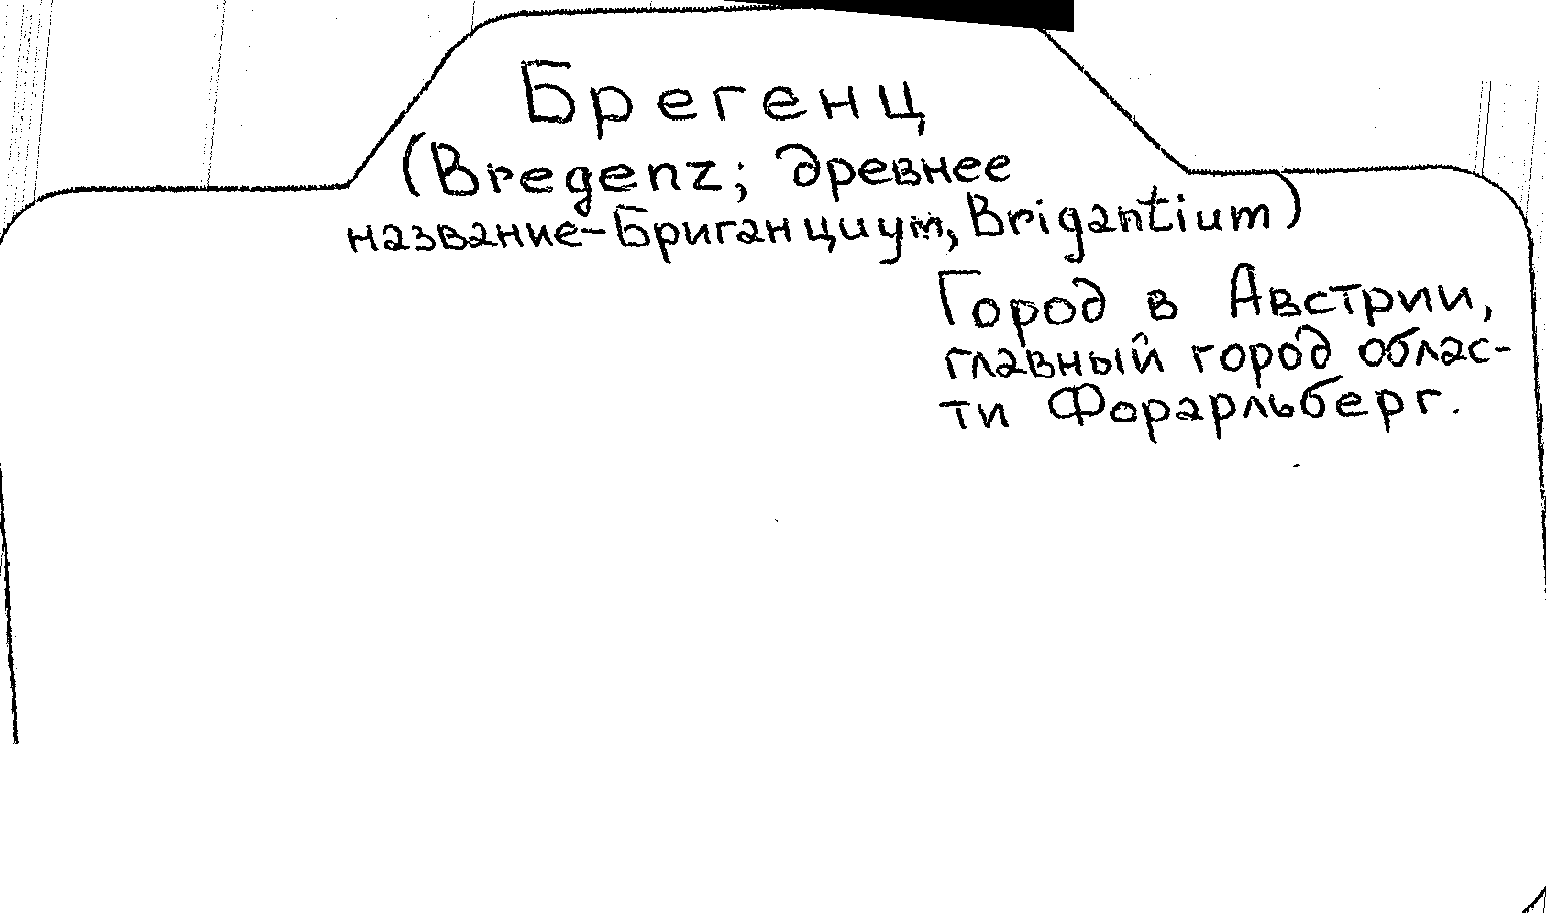 Брегенц
(Bregenz; древнее
название-Бриганциум, Brigantium)
Город в Австрии,
главный город облас-
ти Форарльберг.